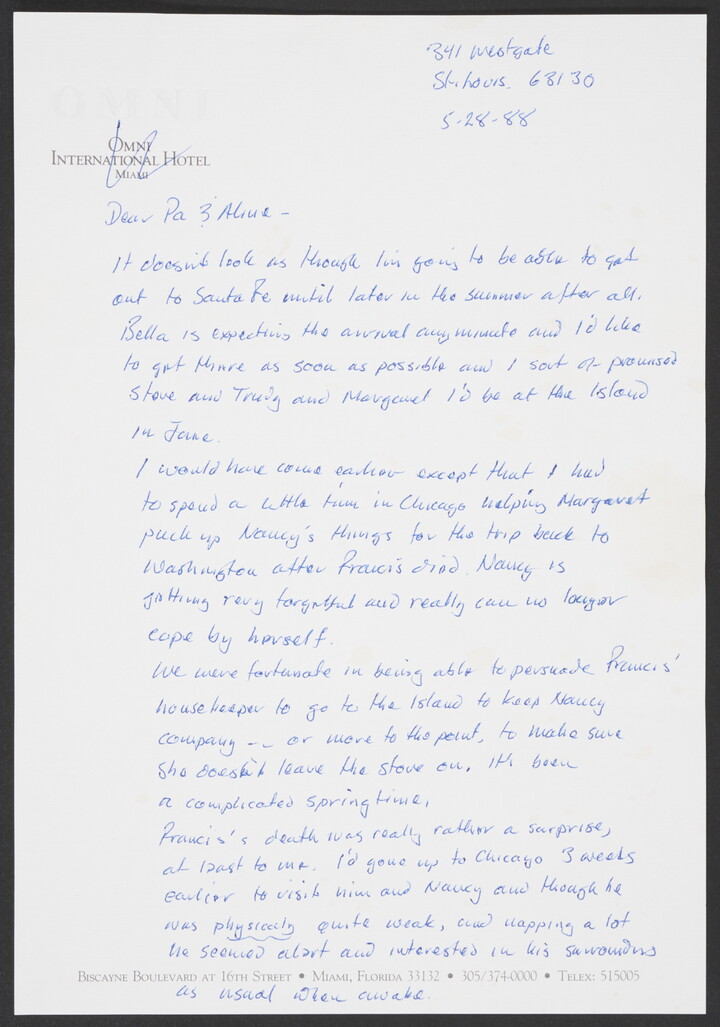 341 Westgate
St. Louis. 63130
5-28-88
OMNI
INTERNATIONAL HOTEL
MIAMI
Dear Pa & Aline -
It doesn't look as though I'm going to be able to get
out to Santa Fe until later in the summer after all.
Bella is expecting the arrival any minute and I'd like
to get there as soon as possible and I sort of promised
Steve and Trudy and Margaret I'd be at the Island
in June.
I would have come earlier except that I had
to spend a little time in Chicago helping Margaret
pack up Nancy's things for the trip back to
Washington after Francis died. Nancy is
getting very forgetful and really can no longer
cope by herself.
We were fortunate in being able to persuade Francis'
housekeeper to go to the Island to keep Nancy
company -- or more to the point, to make sure
she doesn't leave the stove on. It's been
a complicated springtime.
Francis's death was really rather a surprise,
at least to me. I'd gone up to Chicago 3 weeks
earlier to visit him and Nancy and though he
was physically quite weak, and napping a lot
he seemed alert and interested in his surroundings
BISCAYNE BOULEVARD AT 16TH STREET • MIAMI, FLORIDA 33132 • 305/374-0000 • TELEX: 515005
as usual when awake.